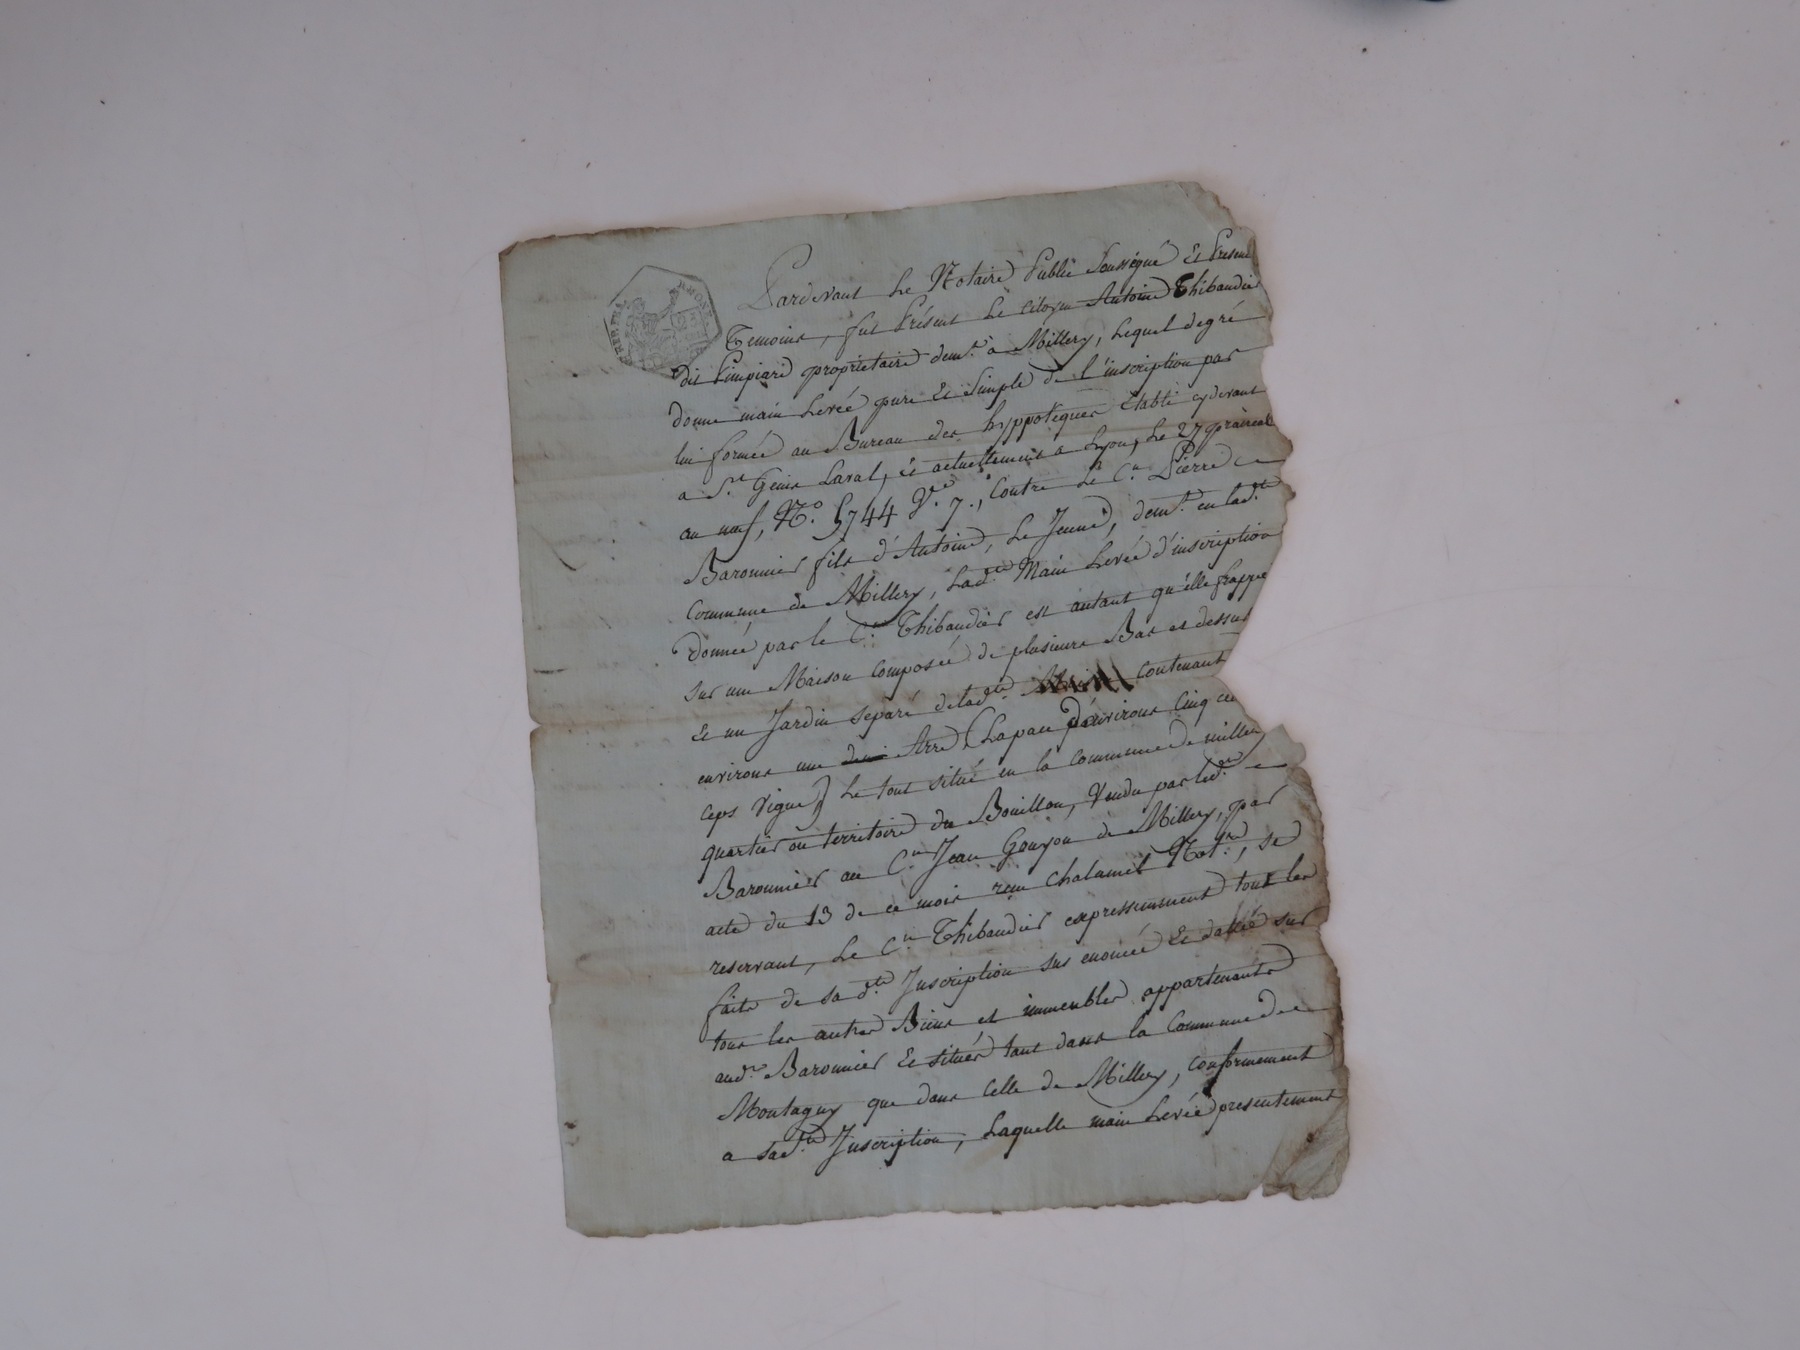 RÉP. FRA.
RHONE
Pardevant Le Notaire Public Soussigné Et Present
Temoins, fut Présent Le Citoyen Antoine Thibaudier
dit propriétaire demt. à Millery, Lequel degré
donne main Levée pure Et Simple de l'inscription par
lui formée au Bureau des hyppoteques Etabli cydevant
a St. Genis Laval, et actuellement a Lyon, Le 27 prairéal
an neuf, No. 5744 Ve. 7., Contre Le Cn. Pierre
Baronnier fils d'Antoine, Le Jeune, demt. en ladte.
Commune de Millery, Ladte. Main Levée d'inscription
Donnée par le Cn. Thibaudier est autant qu'elle frappe
Sur une Maison Composée de plusieurs Bas et dessus
Et un Jardin séparé deladte. contenant
environs une Arre (Lapace d'environs Cinq cen
Ceps Vigne) Le tout situé en la Commune de millery
quartier ou territoire du Bouillon, Vendu par ledr.
Baronnier au Cn. Jean Gouyon de Millery, par
acte du 13 de ce mois reçu Chalamel Notre., se
reservant, Le Cn. Thibaudier expressemment tous les
faits de sa dte. Inscription sus enoncée Et dattée sur
tous les autres Biens et immeubles appartenants
audr. Baronnier Et situés tant dans la Commune de
Montagny que dans Celle de Millery, Conformement
a sadte. Inscription, Laquelle main Levée presentement